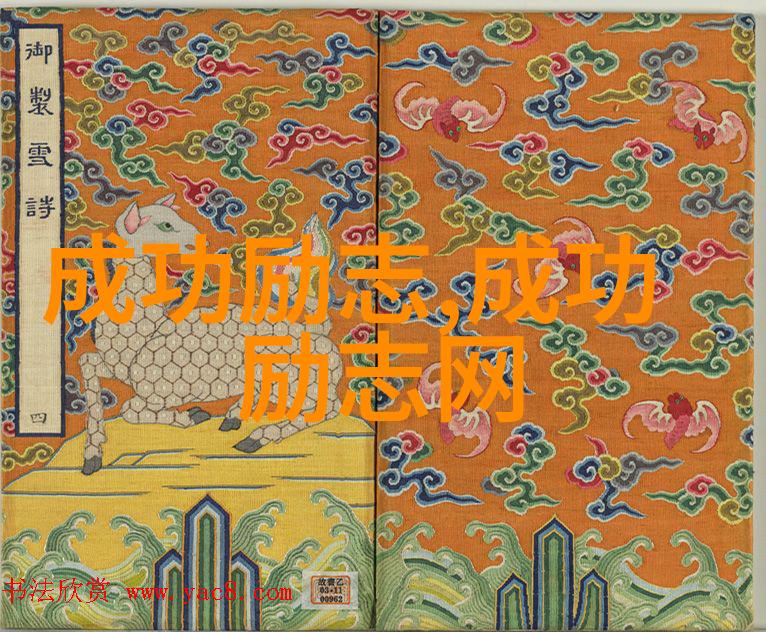 御製雪詩
四
成功励志,成功
励志网
书法欣赏 www.yac8.com
故書乙
03·11
00962